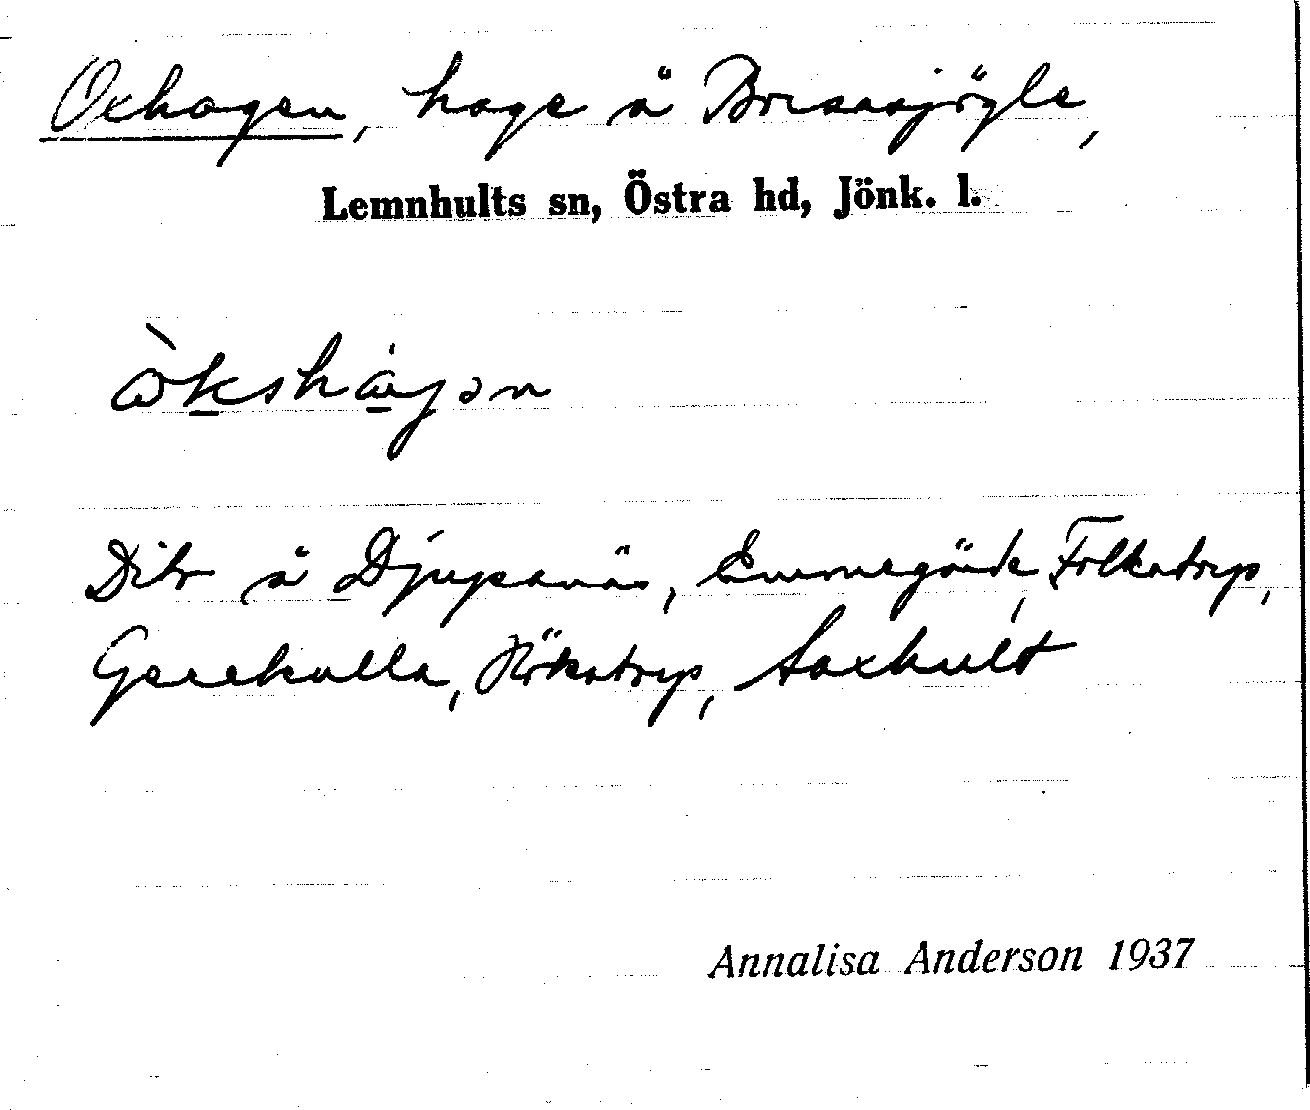 Oxhagen, hage å Bressajögle,
Lemnhults sn, Östra hd, Jönk. l.
Dito å Djupanäs, Emmegärde, Folkatorp,
Gerekulla, Hökatorp, Saxhult
Annalisa Anderson 1937